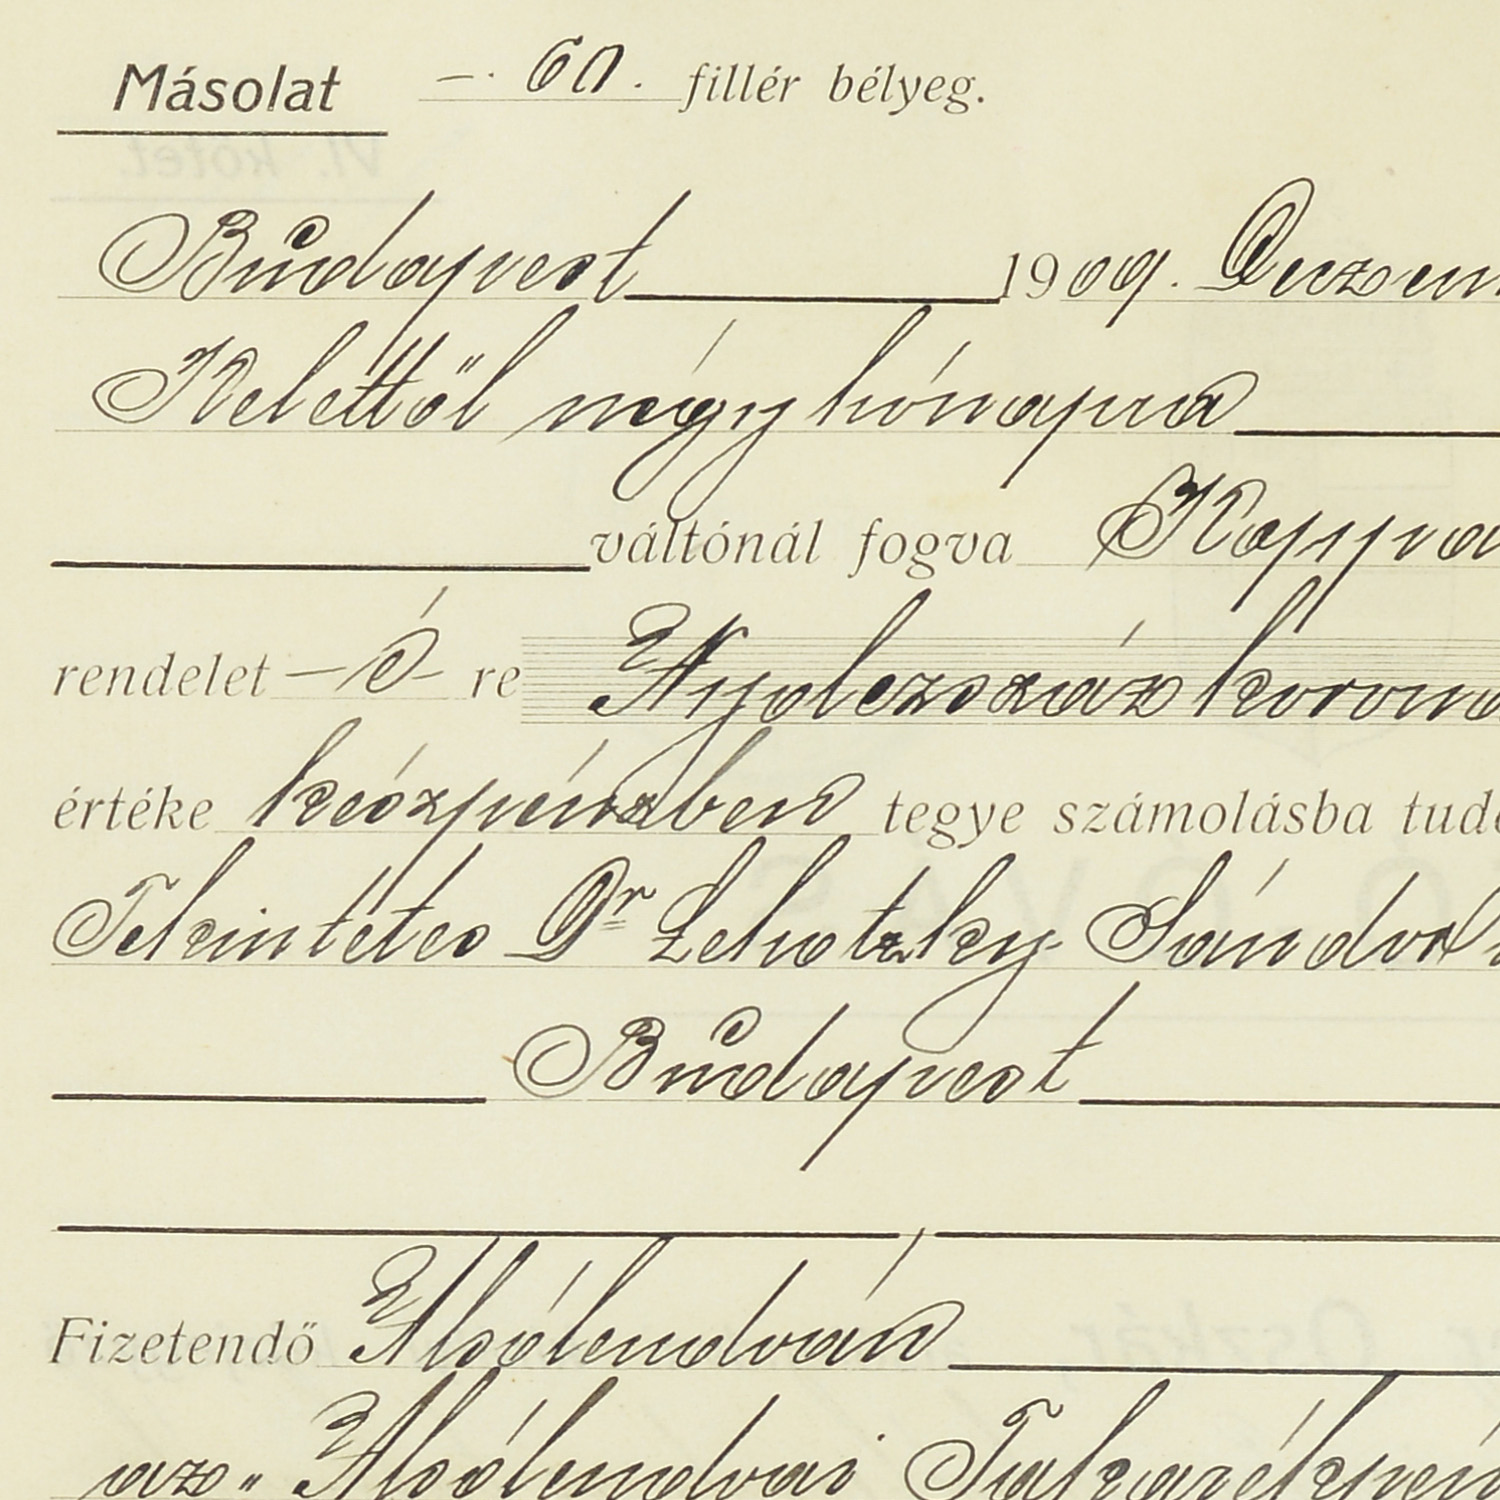 Másolat —. 60. fillér bélyeg.
Budapest 1909. Deczem
Kelettől négy hónapra
váltónál fogva Koppa
rendelet – ő – re Nyolczszáz korona
érték​e készpénzben tegye számolásba tud
Tekintetes Dr Lehotzky Sándor
Budapest
Fizetendő Alsólendván
az „ Alsólendvai Takarékpén